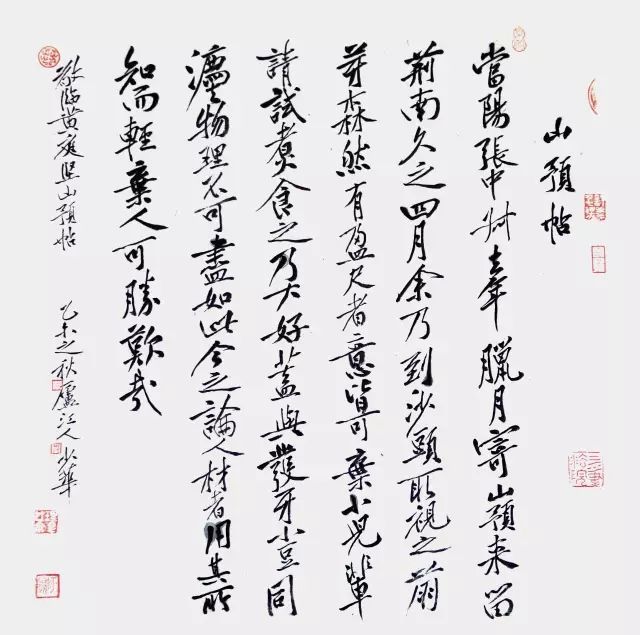 山預帖
當陽張中叔去年臘月寄山預來留
荊南久之四月余乃到沙頭取視之萌
芽森然有盈尺者意皆可棄小兒輩
請試煮食之乃大好蓋與發牙小豆同
灋物理不可盡如此今之論人材者用其所
知而輕棄人可勝歎哉
敬臨黃庭堅山預帖 乙未之秋廬江人少華